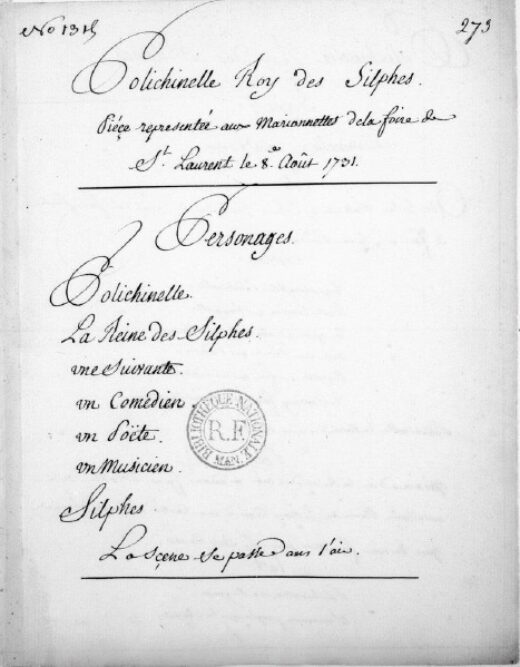 No 1315
273
Polichinelle Roy des Silphes.
Piéçe representée aux Marionnettes de la foire de
St. Laurent le 8. Août 1731.
Personages.
Polichinelle.
La Reine des Silphes.
une Suivante.
un Comédien.
un Poëte.
un Musicien.
Silphes.
La Sçene se passe dans l'air.
BIBLIOTHÈQUE NATIONALE
R.F.
MAN.